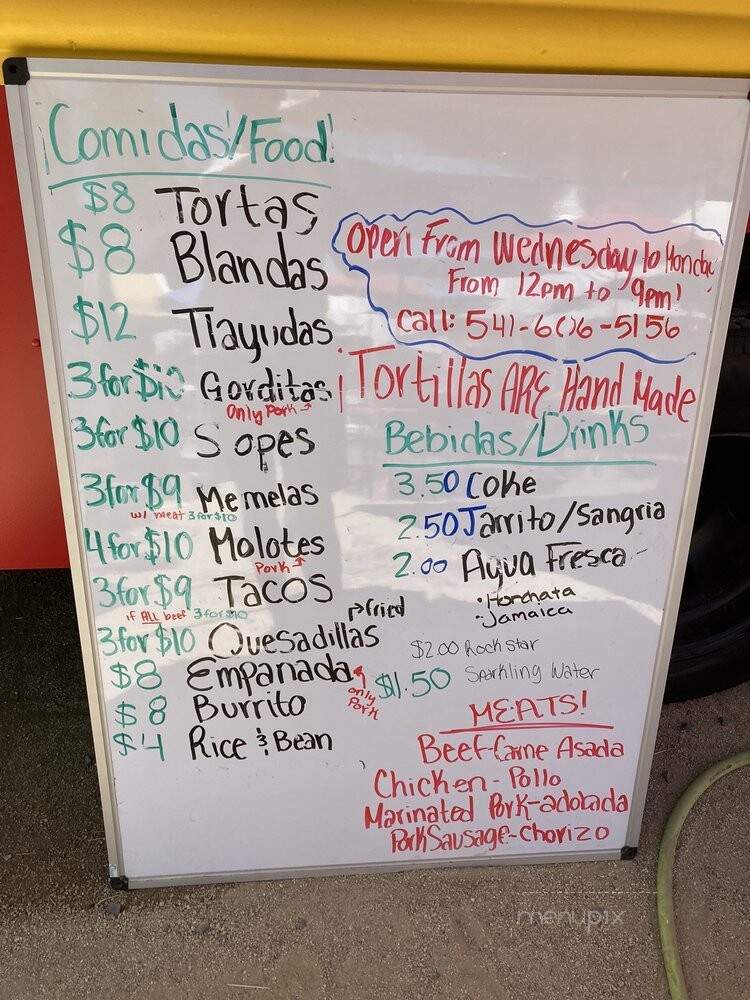 ¡Comidas!/Food!
$8 Tortas
$8 Blandas
$12 Tlayudas
3 for $10 Gorditas
Only Pork
3 for $10 Sopes
3 for $9 Memelas
w/ meat 3 for $10
4 for $10 Molotes
Pork
3 for $9 Tacos
if ALL beef 3 for $10
3 for $10 Quesadillas
fried
$8 Empanada
only
Pork
$8 Burrito
$4 Rice & Bean
Open From Wednesday to Monday
From 12pm to 9pm!
Call: 541-606-5156
¡Tortillas ARE Hand Made
Bebidas/Drinks
3.50 Coke
2.50 Jarrito/Sangria
2.00 Agua Fresca
• Horchata
• Jamaica
$2.00 Rockstar
$1.50 Sparkling Water
MEATS!
Beef-Carne Asada
Chicken - Pollo
Marinated Pork-adobada
Pork Sausage-Chorizo
menupix